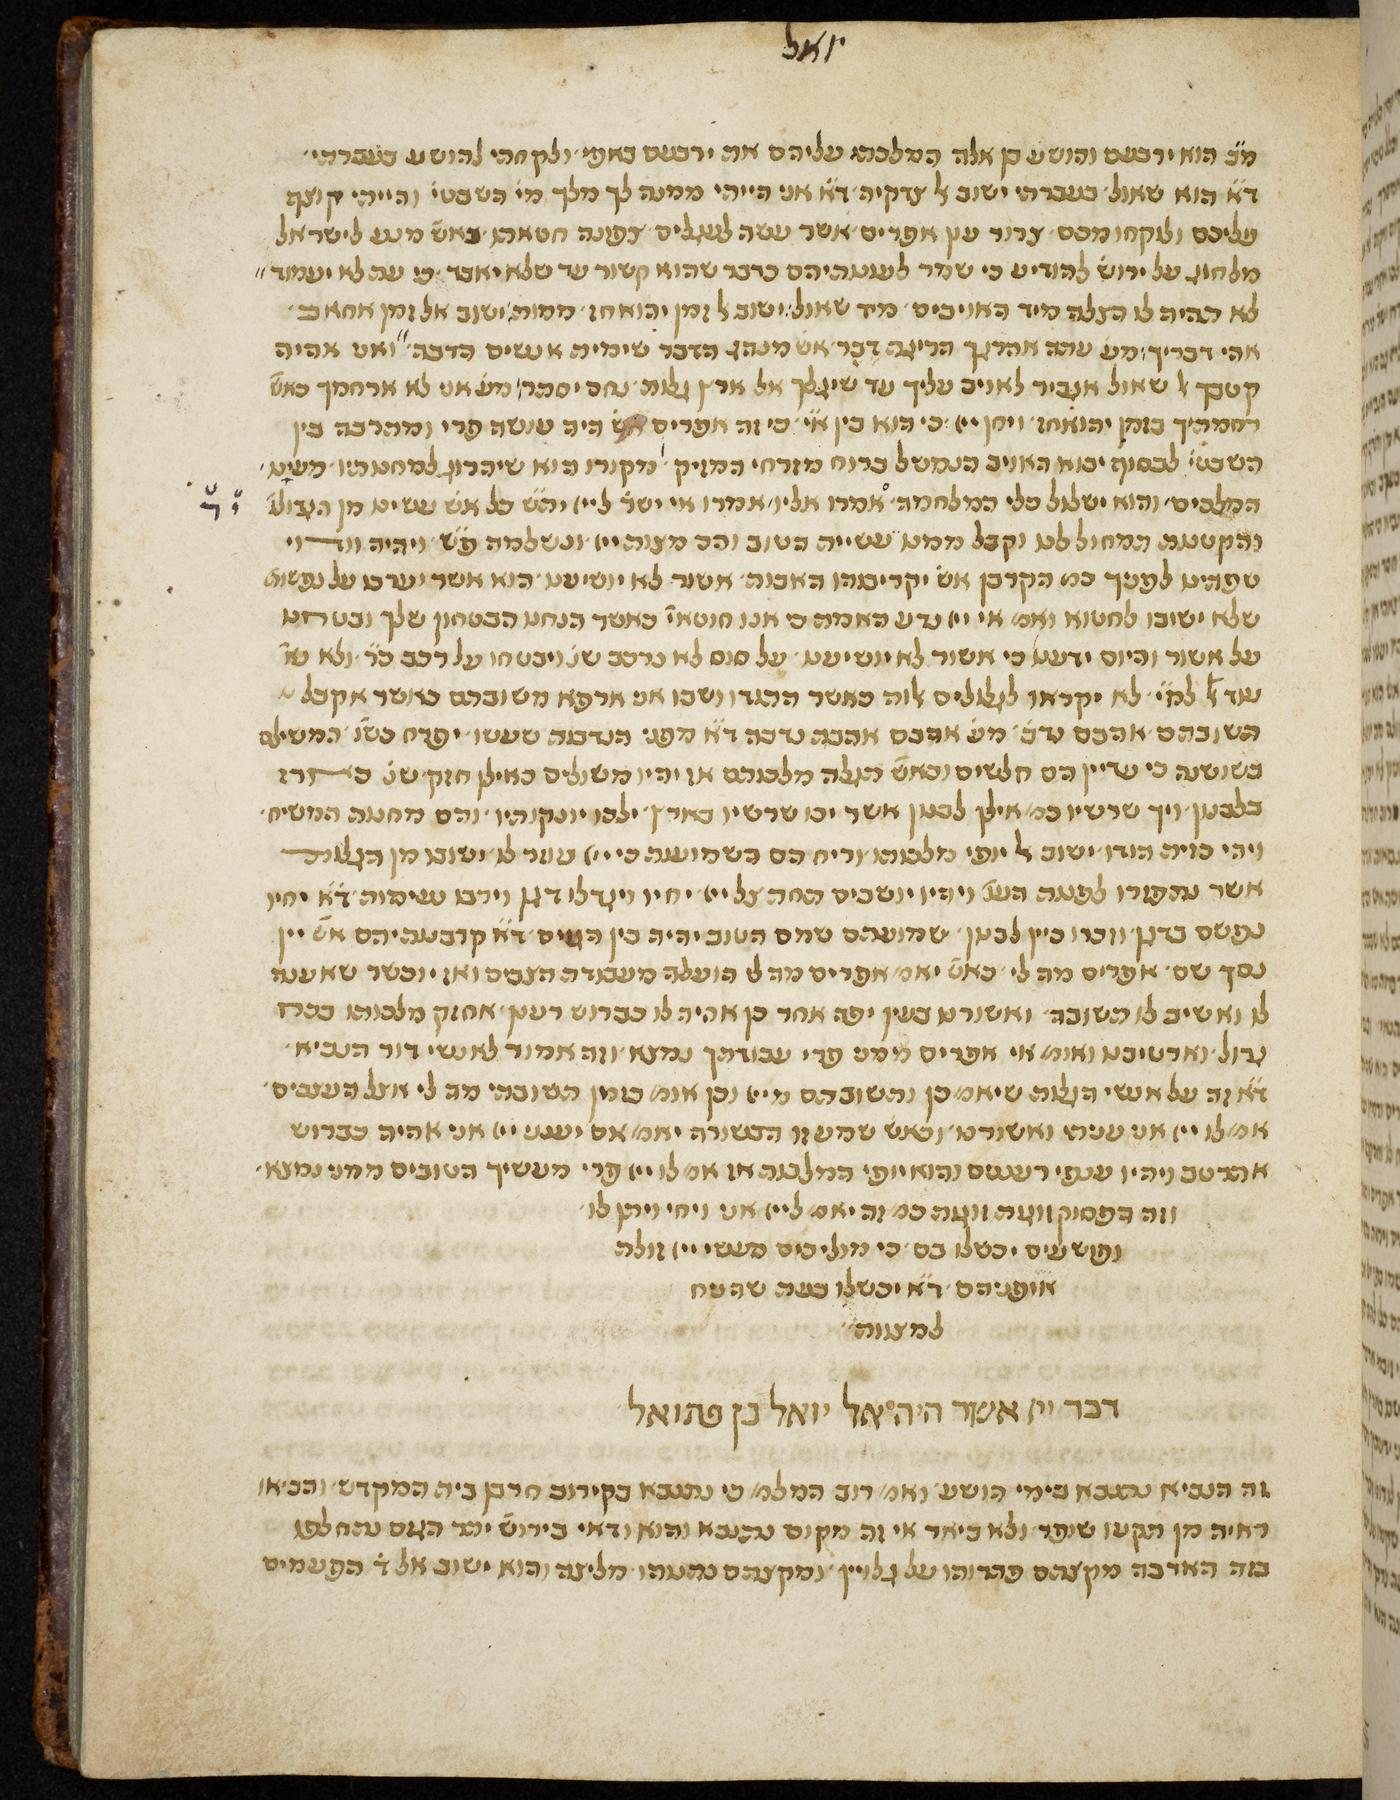 יואל
מ״ב הוא ירבעם והושע בן אלה המלכתו עליהם את ירבעם באפי ולקחתי להושע בעברתי
ד״א הוא שאול בעברתי ישוב ל צדקיה ד״א אני הייתי ממנה לך מלך מי השבטי והייתי קוצף
עליכם ולוקחו מכם צרור עון אפרים אשר עשה לעגלים צפונה חטאתו באש מנע לישראל
מלחוג על ירוש להודיע כי שמר לעונותיהם כדבר שהוא קשור עד שלא יאבד כי עת לא יעמוד
לא תהיה לו הצלה מיד האויבים מיד שאול ישוב ל זמן יהואחז ממות ישוב אל זמן אחאב
אהי דבריך מע עתה אהרגך הריגת דבר אש מנהג הדבר שימית אנשים הרבה ואני אהיה
קטבך ל שאול אגביר לאויב עליך עד שיגלך אל ארץ גלות נחם יסתר מע אני לא ארחמך כאש
רחמתיך בזמן יהואחז ויחן ייי כי הוא בין א״י כי זה אפרים אש היה עושה פרי ומתרבה בין
השבטי לבסוף יבוא האויב הנמשל ברוח מזרחי המזיק מקורו הוא שיהרוג למחנותיו מעינו
המלכים והוא ישלול כלי המלחמה אמרו אליו אמרו אי ישר לייי יהש כל אש עשינו מן הגדול
והקטנות תמחול לנו וקבל ממנו עשיית הטוב והם מצות ייי ונשלמה פ״ש ויהיה וודוי
שפתינו לפניך כמ הקרבן אש יקריבוהו האבות אשור לא יושיענו הוא אשר יערבו על נפשות
שלא ישובו לחטוא ואמ אי ייי נדע באמת כי אנו חוטאי כאשר הנחנו הבטחון שלך ובטחנו
על אשור והיום ידענו כי אשור לא יושיענו על סוס לא נרכב שנ ויבטחו על רכב כר ולא נא
עוד אל למ״י לא יקראו לגלולים אלוה כאשר התודו ושבו אני ארפא משובתם כאשר אקבל
תשובתם אהבם נדב מע אהבם אהבה נדבה ד״א מפני הנדבות שעשו יפרח כשו המשילם
בשושנה כי עדיין הם חלשים וכאש תגלה מלכותם אז יהיו משולים כאילן חזק שנ כארז
בלבנון ויך שרשיו כמ אילן לבנון אשר יכו שרשיו בארץ ילכו יונקותיו והם מחנות המשיח
ויהי כזית הודו ישוב ל יופי מלכותו וריח הם השמועות כי ייי עוזר לו ישובו מן הגלות
אשר נתפזרו לפאת העו ויהיו יושבים תחת צל ייי יחיו ויגדלו דגן וירבו נעימות ד״א יחיו
נפשם בדגן וזכרו כיין לבנון שמועתם שמם הטוב יהיה בין הגוים ד״א קרבנותיהם אש יין
נסך שם אפרים מה לי כאש יאמ אפרים מה לי הועלה מעבודת העצבים ואז יוכשר שאענה
לו ואשיב לו תשובה ואשורנו בעין יפה אחר כן אהיה לו כברוש רענן אחזק מלכותו בכח
גדול וארטיבנו ואומ אי אפרים ממני פרי עבודתך נמצא וזה אמור לאנשי דור הנביא
ד״א זה על אנשי הגלות שיאמ כן ותשובתם מייי וכן אומ בזמן תשובתי מה לי אצל העצבים
אמ לו ייי אני עניתי ואשורנו וכאש שמע זו הבשורה יאמ אם יענני ייי אני אהיה כברוש
אתרטב ויהיו ענפי רעננים והוא יופי המלכות אז אמ לו ייי פרי מעשיך הטובים ממני נמצא
וזה בפסוק וזנות וזנות כמ זה יאמ לייי אני ויחי ויתן לו
ופושעים יכשלו בם כי מוליכים מעשי ייי זולת
אופניהם ד״א יכשלו בעת שהטח
למצוות
דבר ייי אשר היה אל יואל בן פתואל
זה הנביא נתנבא בימי הושע ואמ רוב המלמ כי נתנבא בקירוב חרבן בית המקדש והביאו
ראיה מן תקעו שופר ולא ביאר אי זה מקום נתנבא והוא ודאי בירוש יתר הגזם נתחלפו
בזה הארבה מקצתם פתרוהו על גלויין ומקצתם נתנוהו מליצה והוא ישוב אל ד הפעמים